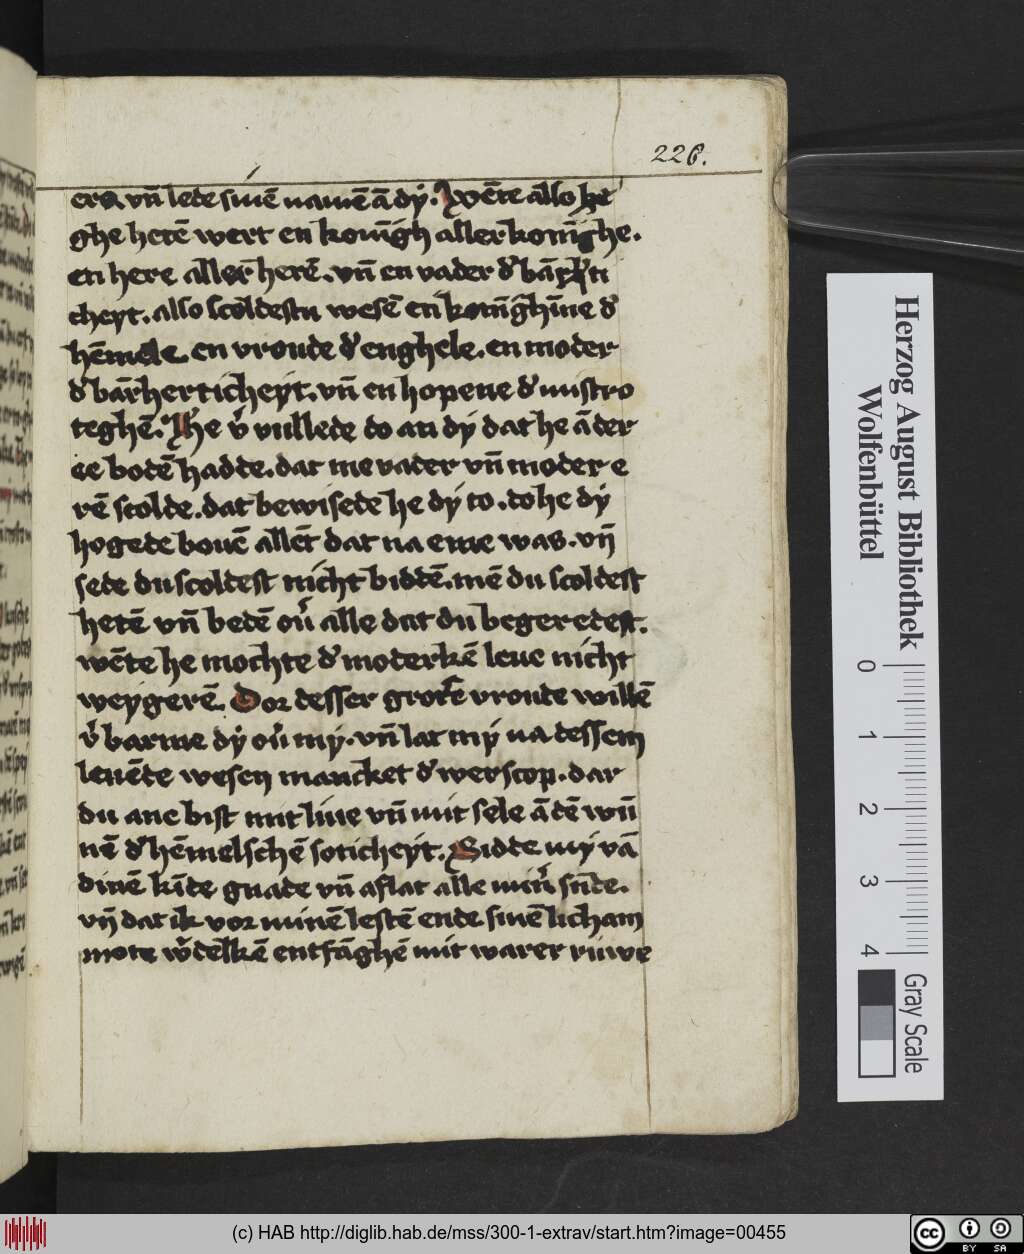 226.
ere vn̄ lede sinē namē ā dy. Wēte allo he
ghe hetē wert en konīgh aller konīghe.
en here aller herē. vn̄ en vader d' bārh'ti
cheyt. also scoldestu wesē en konīghīne d'
hēmele. en vroude d' enghele. en moder
d' bārherticheyt. vn̄ en hopene d' mistro
teghē. He v' vullede do an dy dat he ā der
ee bodē hadde. dat me vader vn̄ moder e
rē scolde. dat bewisede he dy to. do he dy
hogede bouē allēt dat na eme was. vn̄
sede du scoldest nicht biddē. mē du scoldest
hetē vn̄ bedē ou' alle dat du begeredest.
wēte he mochte d' moderkē leue nicht
weygerē. Dor desser grotē vroude willē
v' barme dy ou' my. vn̄ lat my na dessem
leuēde wesen mancket d' werscop. dar
du ane bist mit liue vn̄ mit sele ā dē wn̄
nē d' hēmelschē soticheyt. Bidde my vā
dinē kīde gnade vn̄ aflat alle min' sn̄de.
vn̄ dat ik vor minē lestē ende sinē licham
mote w'delkē entfāghē mit warer ruwe
Herzog August Bibliothek
Wolfenbüttel
0 1 2 3 4
Gray Scale
(c) HAB http://diglib.hab.de/mss/300-1-extrav/start.htm?image=00455
cc BY SA